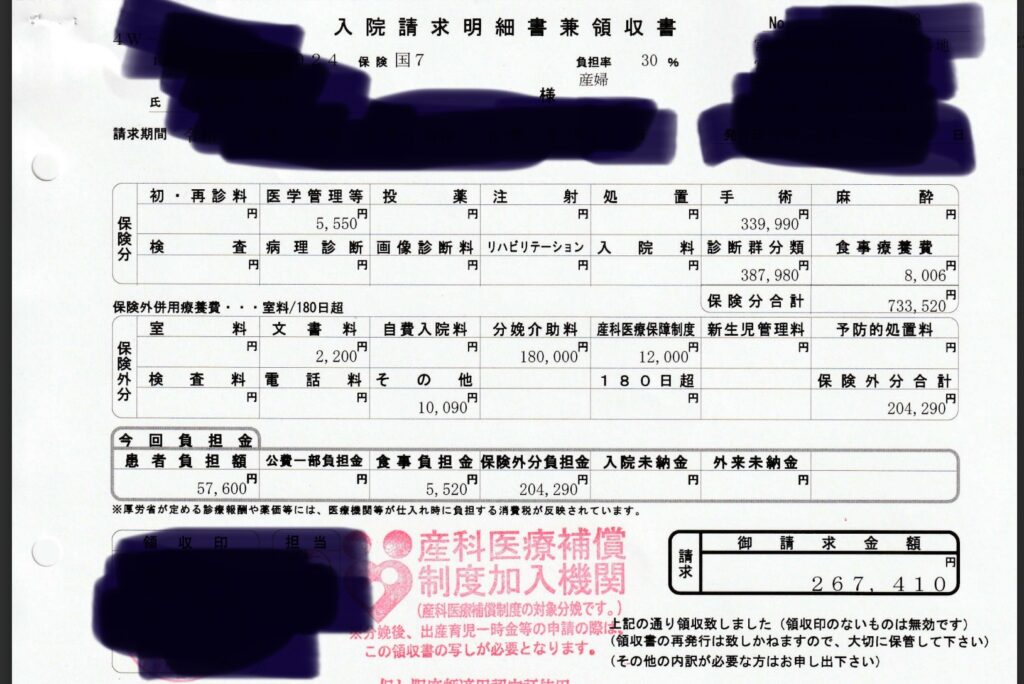 入院請求明細書兼領収書
No
4W
保険 国7 負担率 30 %
産婦
氏 様
請求期間
日
保険分
初・再診料 医学管理等 投薬 注射 処置 手術 麻酔
円 5,550円 円 円 円 339,990円 円
検査 病理診断 画像診断料 リハビリテーション 入院料 診断群分類 食事療養費
円 円 円 円 円 387,980円 8,006円
保険分合計 733,520円
保険外併用療養費・・・室料/180日超
保険外分
室料 文書料 自費入院料 分娩介助料 産科医療保障制度 新生児管理料 予防的処置料
円 2,200円 円 180,000円 12,000円 円 円
検査料 電話料 その他 180日超 保険外分合計
円 円 10,090円 円 204,290円
今回負担金
患者負担額 公費一部負担金 食事負担金 保険外分負担金 入院未納金 外来未納金
57,600円 円 5,520円 204,290円 円 円
※厚労省が定める診療報酬や薬価等には、医療機関等が仕入れ時に負担する消費税が反映されています。
領収印 担当
産科医療補償
制度加入機関
(産科医療補償制度の対象分娩です。)
※分娩後、出産育児一時金等の申請の際は、
この領収書の写しが必要となります。
請求
御請求金額
267,410円
上記の通り領収致しました(領収印のないものは無効です)
(領収書の再発行は致しかねますので、大切に保管して下さい)
(その他の内訳が必要な方はお申し出下さい)